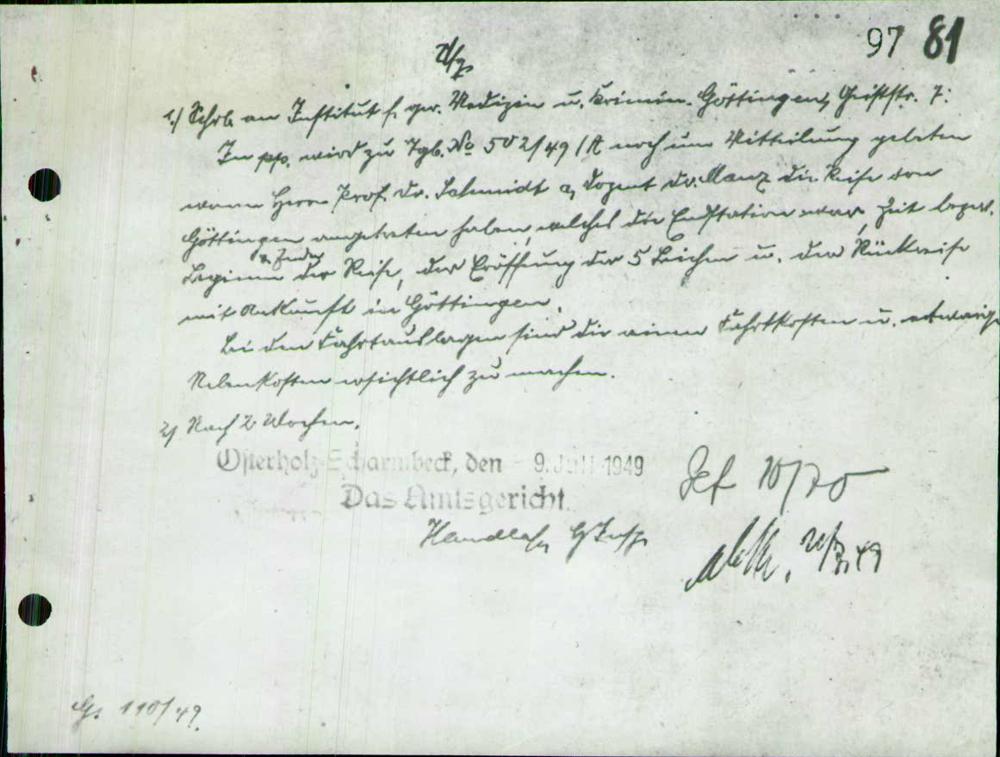 97 81
Vfg.
1./ Schrb. an Institut f. ger. Medizin u. Krimin. Göttingen, Geiststr. 7:
In pp. wird zu Tgb. No 502/49 /A noch um Mitteilung gebeten
wann Herr Prof. Dr. Schmidt u. Dozent Dr. Manz die Reise von
Göttingen angetreten haben, welches die Endstation war, Zeit bezw.
Beginn u. Ende der Reise, der Eröffnung der 5 Leichen u. der Rückreise
mit Ankunft in Göttingen.
Bei den Fahrtauslagen sind die reinen Fahrtkosten u. etwaige
Nebenkosten ersichtlich zu machen.
2/ Nach 2 Wochen.
Osterholz-Scharmbeck, den 9. Juli 1949
Das Amtsgericht.
Gef 10/7
ab
49
Gs 110/49.